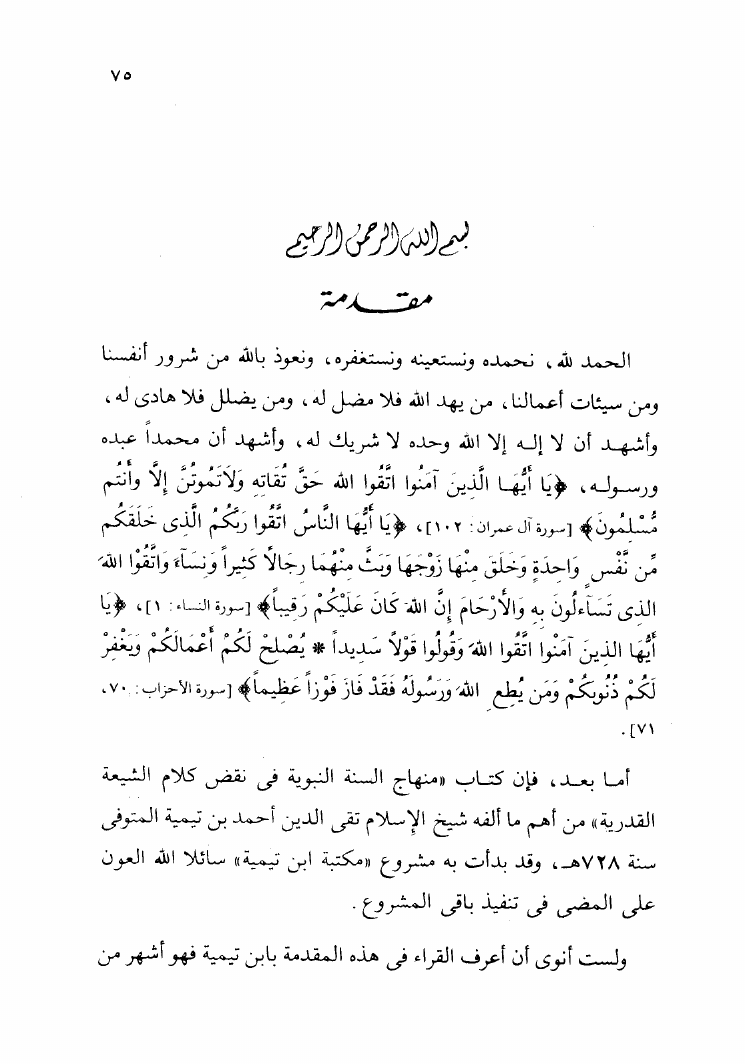 ٧٥
بسم الله الرحمن الرحيم
مقدمة
الحمد لله، نحمده ونستعينه ونستغفره، ونعوذ بالله من شرور أنفسنا
ومن سيئات أعمالنا، من يهد الله فلا مضل له، ومن يضلل فلا هادى له،
وأشهد أن لا إله إلا الله وحده لا شريك له، وأشهد أن محمداً عبده
ورسوله، ﴿يَا أَيُّهَا الَّذِينَ آمَنُوا اتَّقُوا الله حَقَّ تُقَاتِهِ وَلاَتَمُوتُنَّ إِلَّا وَأَنتُم
مُّسْلِمُونَ﴾ [سورة آل عمران: ١٠٢]، ﴿يَا أَيُّهَا النَّاسُ اتَّقُوا رَبَّكُمُ الَّذِى خَلَقَكُم
مِّن نَّفْسٍ وَاحِدَةٍ وَخَلَقَ مِنْهَا زَوْجَهَا وَبَثَّ مِنْهُمَا رِجَالاً كَثِيراً وَنِسَآءً وَاتَّقُوْا اللهَ
الذِى تَسَآءلُونَ بِهِ وَالأَرْحَامَ إِنَّ اللهَ كَانَ عَلَيْكُمْ رَقِيباً﴾ [سورة النساء: ١]، ﴿يَا
أَيُّهَا الذِينَ آمَنُوا اتَّقُوا اللهَ وَقُولُوا قَوْلاً سَدِيداً * يُصْلِحْ لَكُمْ أَعْمَالَكُمْ وَيَغْفِرْ
لَكُمْ ذُنُوبَكُمْ وَمَن يُطِعِ اللهَ وَرَسُولَهُ فَقَدْ فَازَ فَوْزاً عَظِيماً﴾ [سورة الأحزاب: ٧٠،
٧١].
أما بعد، فإن كتاب «منهاج السنة النبوية فى نقض كلام الشيعة
القدرية» من أهم ما ألفه شيخ الإسلام تقى الدين أحمد بن تيمية المتوفى
سنة ٧٢٨هـ، وقد بدأت به مشروع «مكتبة ابن تيمية» سائلا الله العون
على المضى فى تنفيذ باقى المشروع.
ولست أنوى أن أعرف القراء فى هذه المقدمة بابن تيمية فهو أشهر من